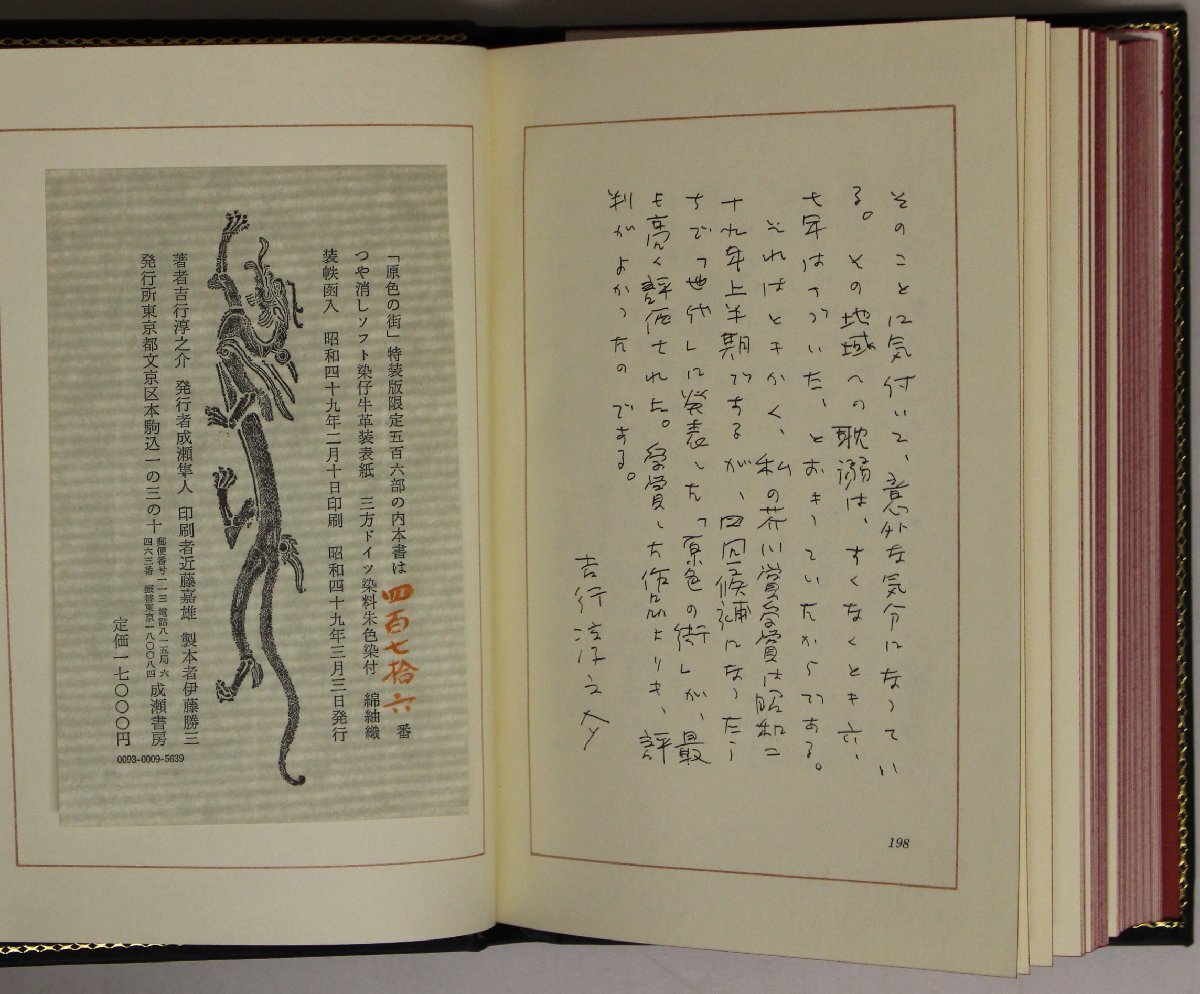 そのことに気付いて、意外な気分になってい
る。その地域への耽溺は、すくなくとも六、
七年はつづいた、とおもっていたからである。
それはともかく、私の芥川賞受賞は昭和二
十九年上半期であるが、四回候補になったう
ちで「世代」に発表した「原色の街」が、最
も高く評価された。受賞した作品よりも、評
判がよかったのである。
吉行淳之介
198
「原色の街」特装版限定五百六部の内本書は四百七拾六番
つや消しソフト染仔牛革装表紙 三方ドイツ染料朱色染付 綿紬織
装帙函入 昭和四十九年二月十日印刷 昭和四十九年三月三日発行
著者吉行淳之介 発行者成瀬隼人 印刷者近藤嘉雄 製本者伊藤勝三
発行所東京都文京区本駒込一の三の十 郵便番号一一三 電話八一五局六
四六三番 振替東京一八〇〇八四 成瀬書房
定価一七〇〇〇円
0093-0009-5639